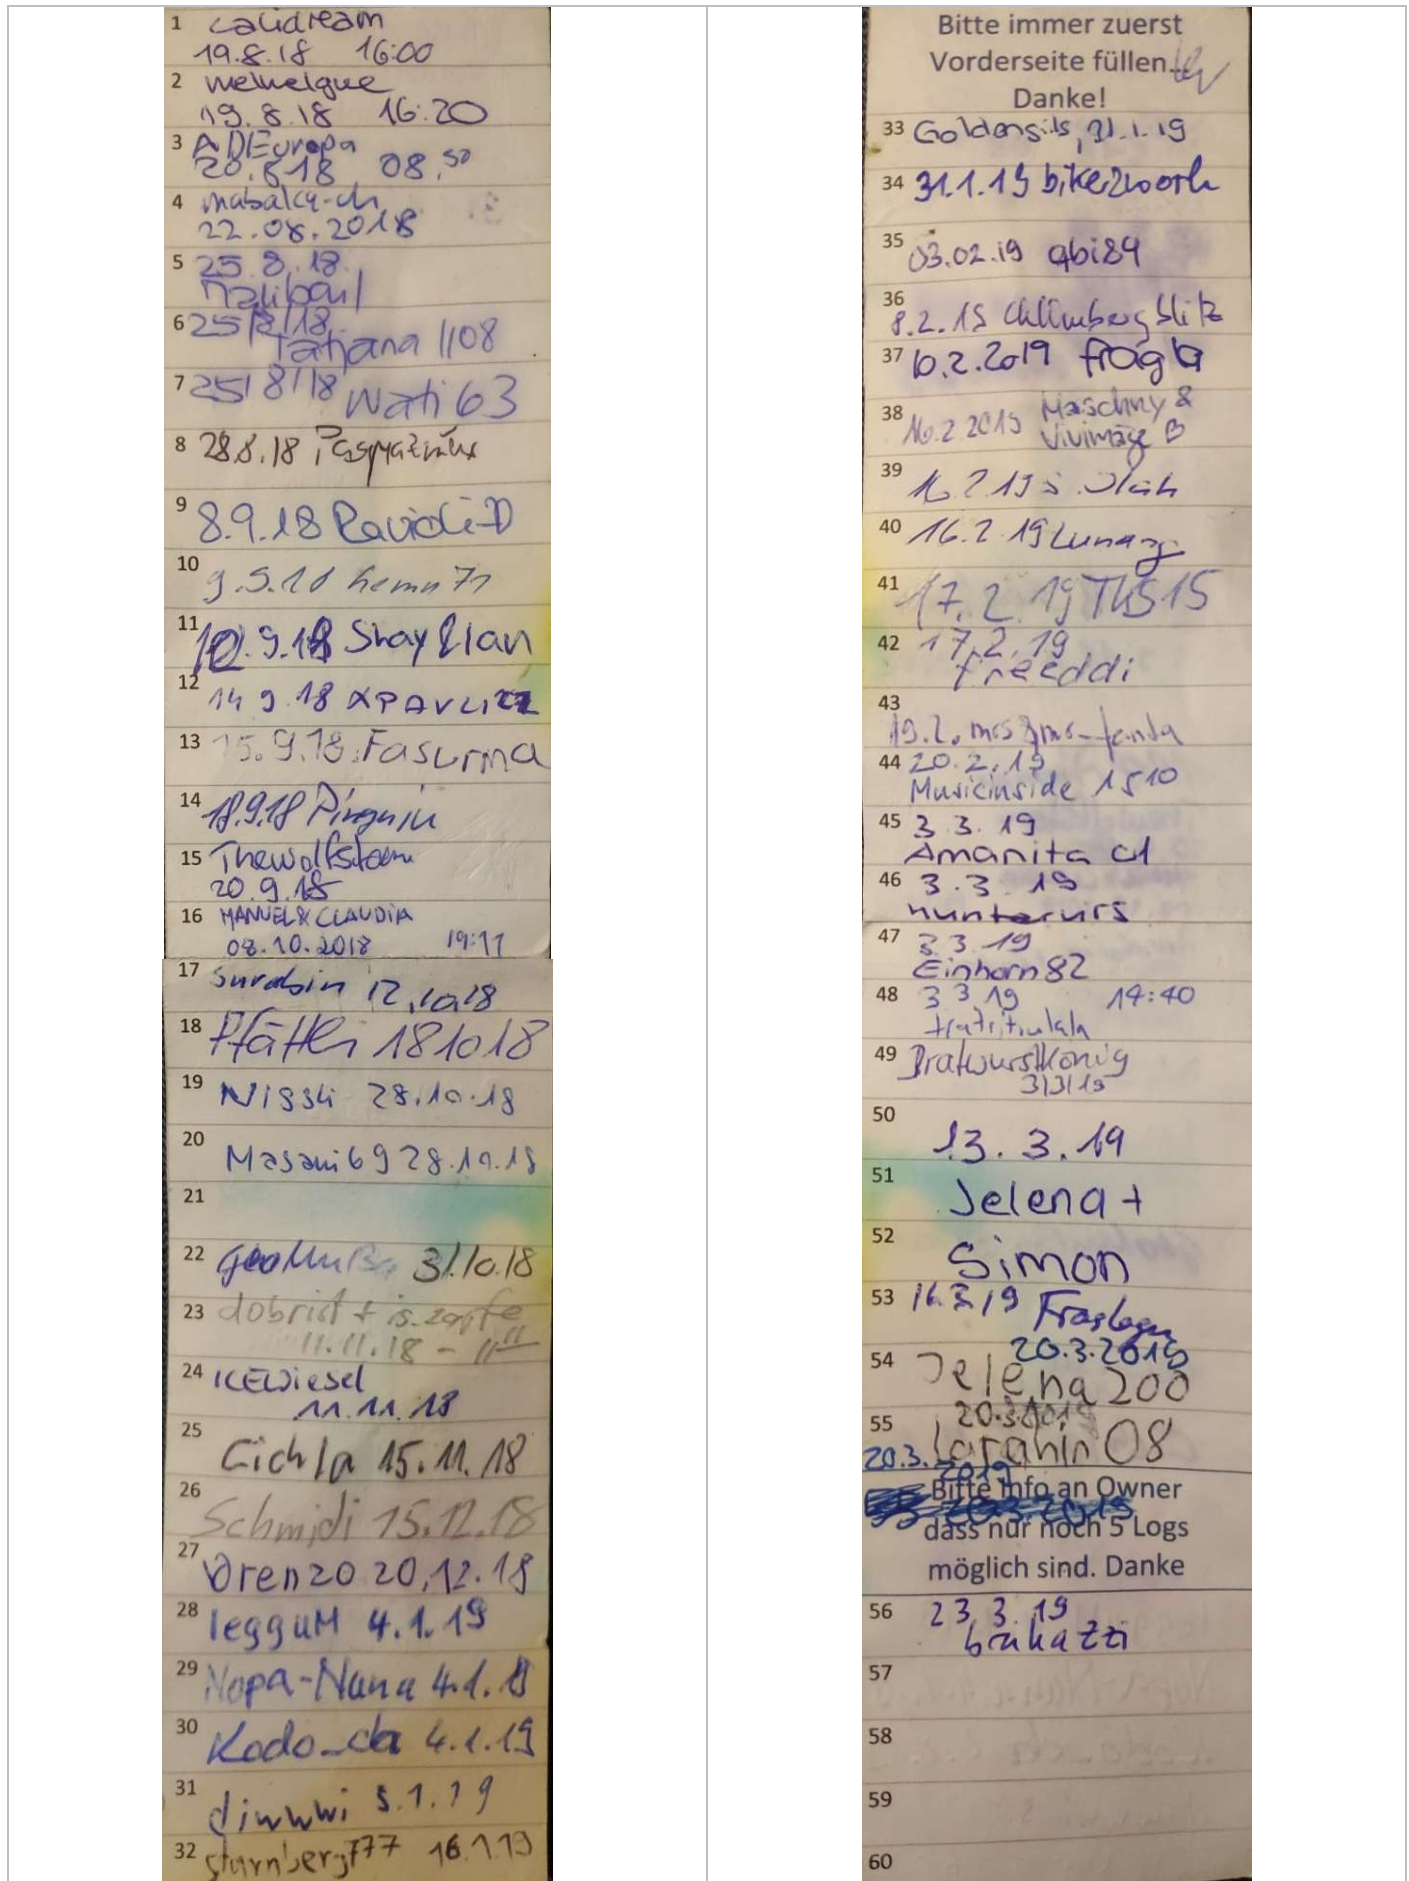 1 calidream
19.8.18 16:00
2
19.8.18 16:20
3 ADEuropa
20.8.18 08.50
4 mabalu-ch
22.08.2018
5 25.8.18
Malibaul
6 25/8/18
Tatjana 1108
7 25/8/18 Wati 63
8 28.8.18
9 8.9.18 Ravioli-D
10 9.9.18
11 10.9.18 Shay & Ilan
12 14 9.18
13 15.9.18. Fasurma
14 18.9.18 Pinguin
15 Thewolfsteam
20.9.18
16 MANUEL & CLAUDIA
08.10.2018 19:11
17 12.10.18
18 Pfättli 18 10 18
19 Nissli 28.10.18
20 Masami69 28.10.18
21
22 31.10.18
23 dobrist +
11.11.18 - 11 11
24 ICEWiesel
11.11.18
25 Cichla 15.11.18
26 Schmidi 15.12.18
27 Orenzo 20.12.18
28 legguM 4.1.19
29 Nopa-Nana 4.1.19
30 Kodo_da 4.1.19
31 diwwwi 5.1.19
32 sturnberg777 16.1.19
Bitte immer zuerst
Vorderseite füllen...
Danke!
33 Goldensils, 31.1.19
34 31.1.19 bike2work
35 03.02.19 abi84
36 8.2.19 Chlimbergblitz
37 10.2.2019
38 Maschny &
16.2 2019 Vivimage
39 16.2.19
40 16.2 19 Lunary
41 17.2 19 ThS15
42 17.2.19
freeddi
43
19.2. mrs&mr-fanta
44 20.2.19
Musicinside 1510
45 3.3.19
Amanita cl
46 3.3.19
hunterurs
47 3 3.19
Einhorn82
48 3 3 19 14:40
tratritrulala
49 Bratwurstkönig
3/3/19
50
13.3.19
51 Jelena +
52 Simon
53 16.3.19
20.3.2019
54 Jelena 200
20.3.2019
55 Larahin 08
20.3.
2019
Bitte Info an Owner
20.3.2019
dass nur noch 5 Logs
möglich sind. Danke
56 23.3.19
57
58
59
60